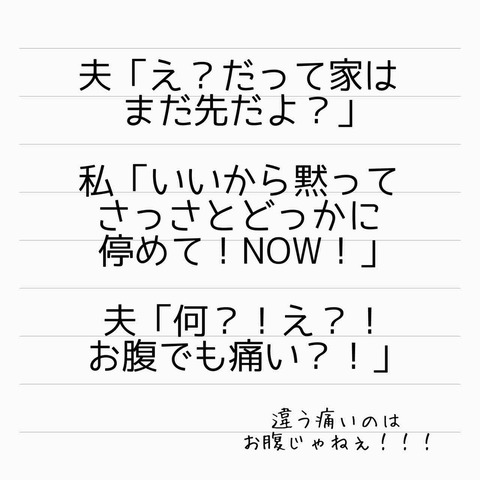 夫「え？だって家は
まだ先だよ？」
私「いいから黙って
さっさとどっかに
停めて！NOW！」
夫「何？！え？！
お腹でも痛い？！」
違う痛いのは
お腹じゃねぇ！！！